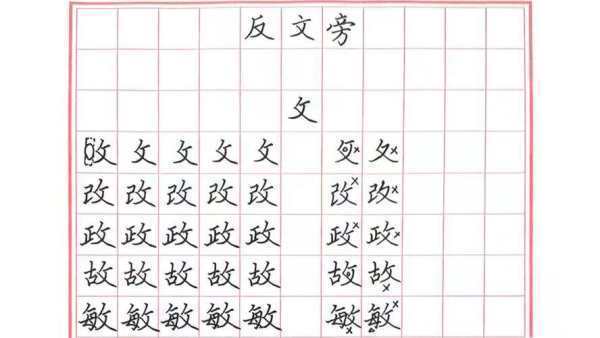 反文旁
攵
攵攵攵攵攵 攵攵
改改改改改 改改
政政政政政 政政
故故故故故 故故
敏敏敏敏敏 敏敏